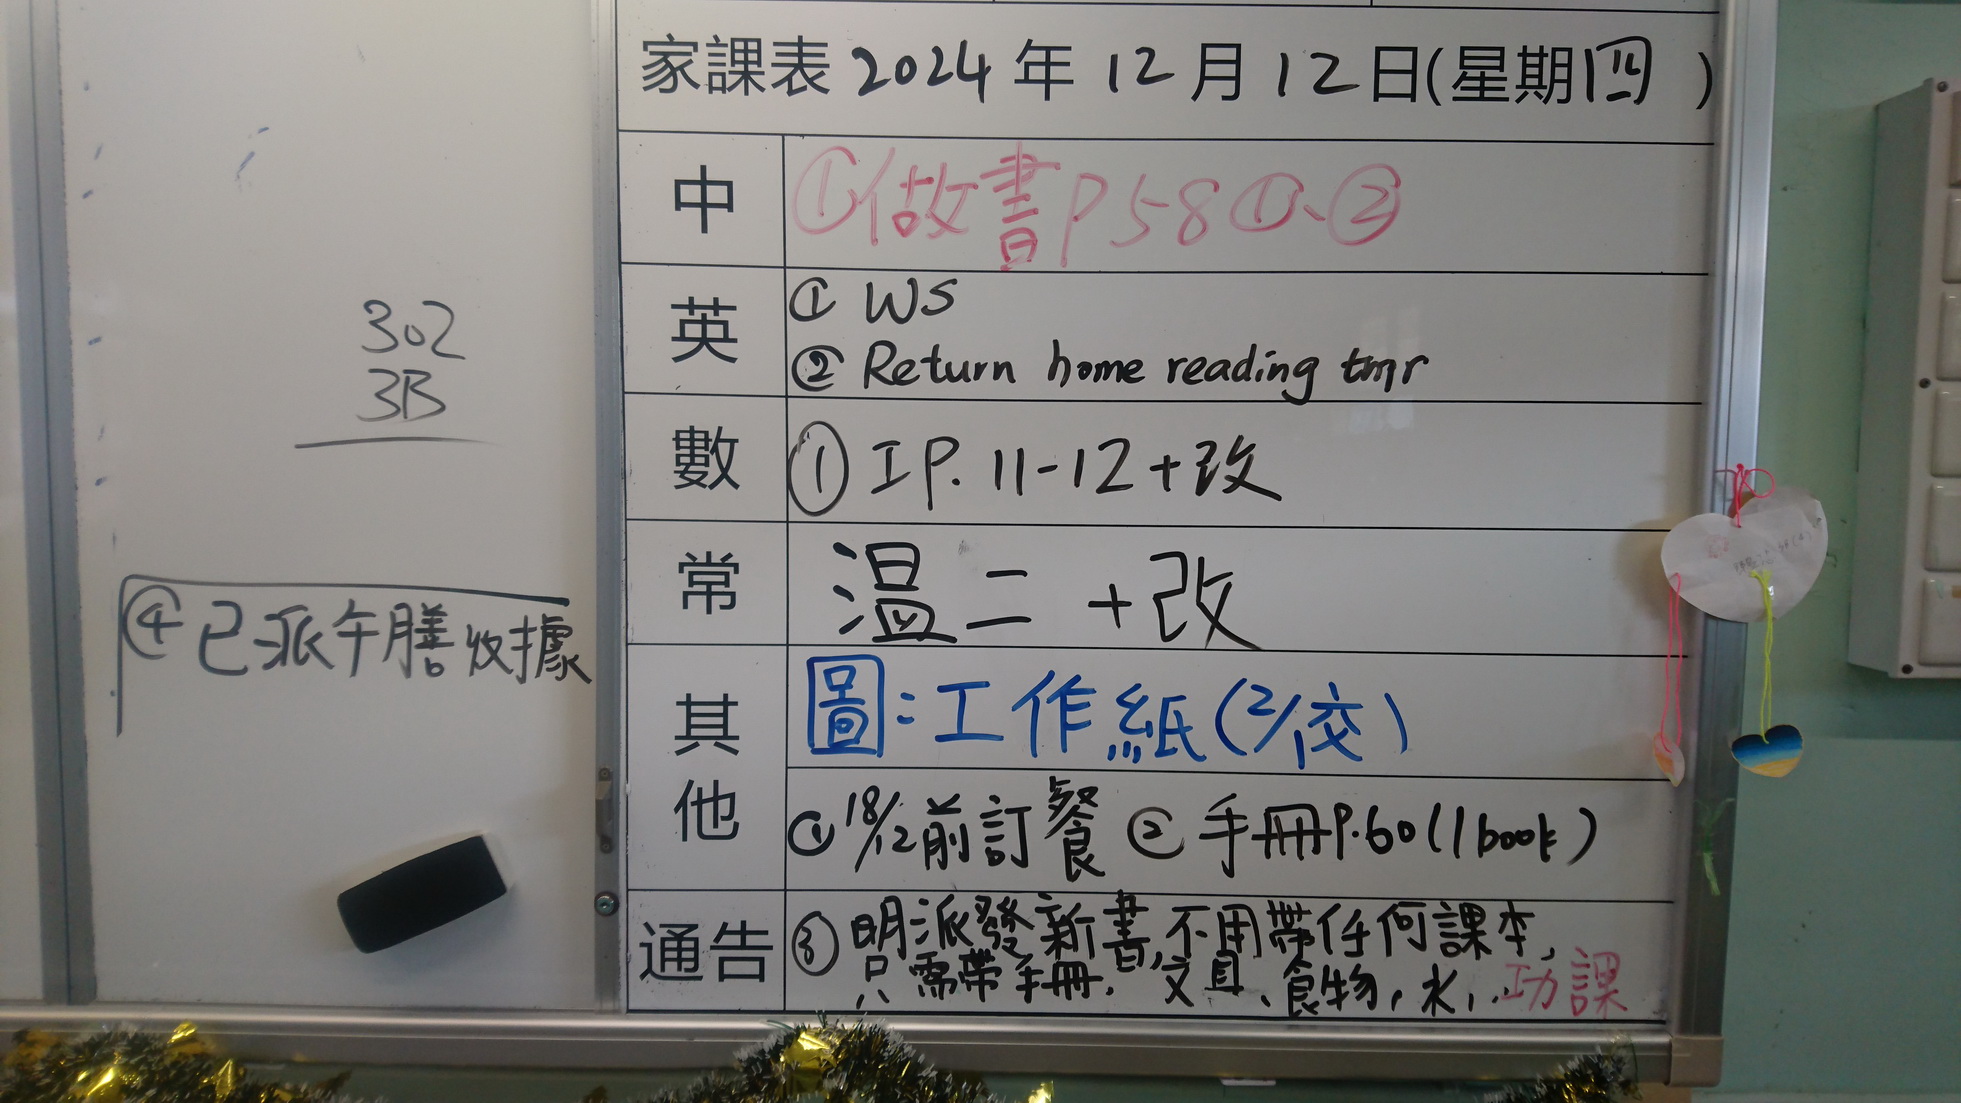 302
3B
④已派午膳收據
家課表 2024 年 12 月 12 日(星期四 )
中 ①做書P58①、②
英 ① WS
② Return home reading tmr
數 ① IP. 11-12+改
常 溫二 +改
其他 圖:工作紙(2/交)
① 18/12前訂餐 ② 手冊P.60(1book)
通告 ③ 明派發新書,不用帶任何課本,
只需帶手冊、文具、食物,水,..功課